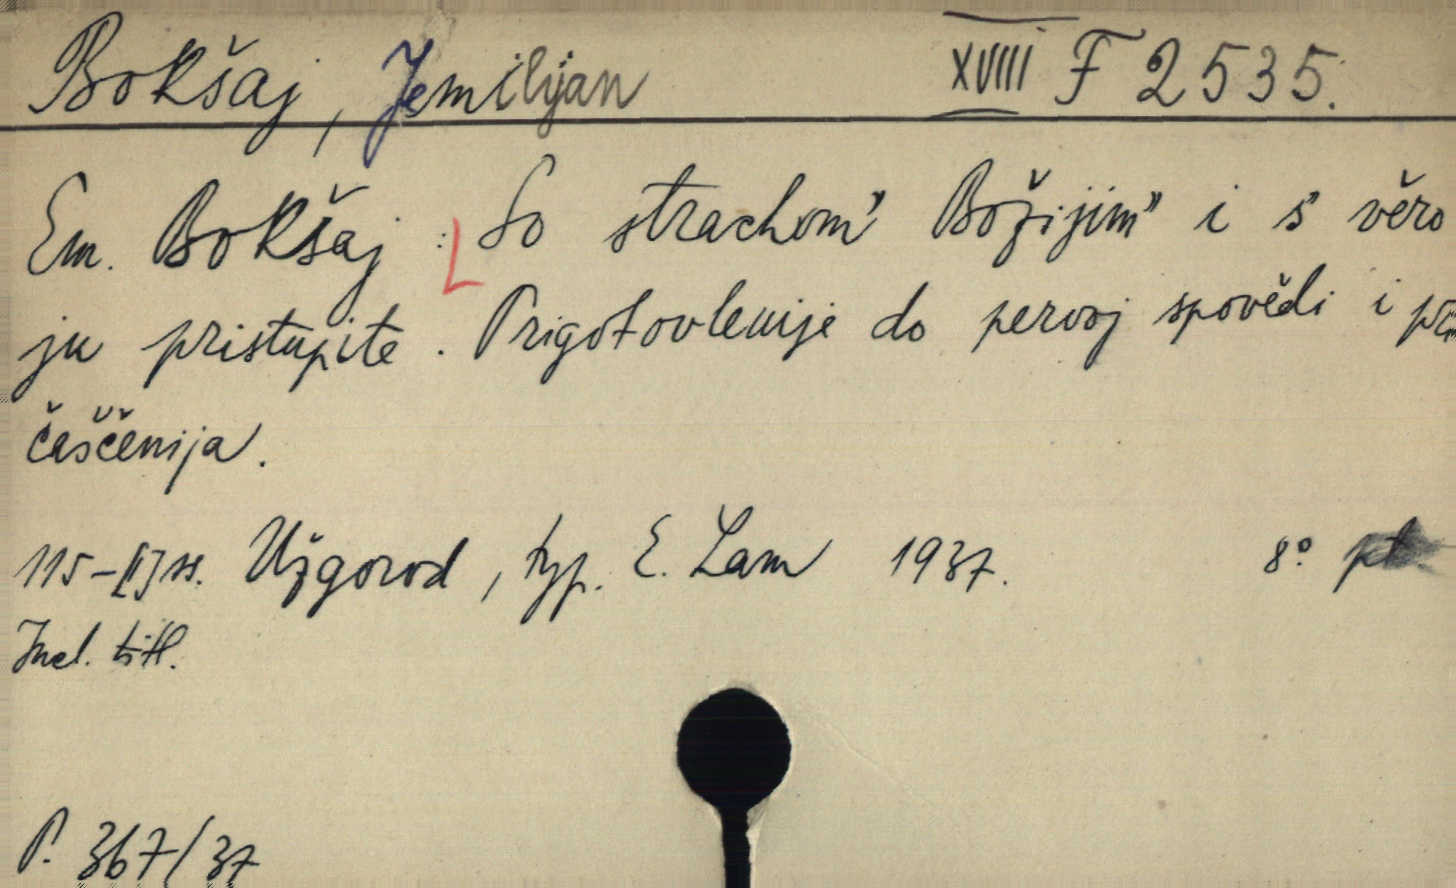 Bokšaj, Jemilijan XVIII F 2535.
Em. Bokšaj: So strachom" Božijim" i s" věro
ju pristupite. Prigotovlenije do pervoj spovědi i pri
čaščenija.
115-[I] ss. Užgorod, typ. E. Lam 1937. 8°
Incl. titl.
P. 367/37